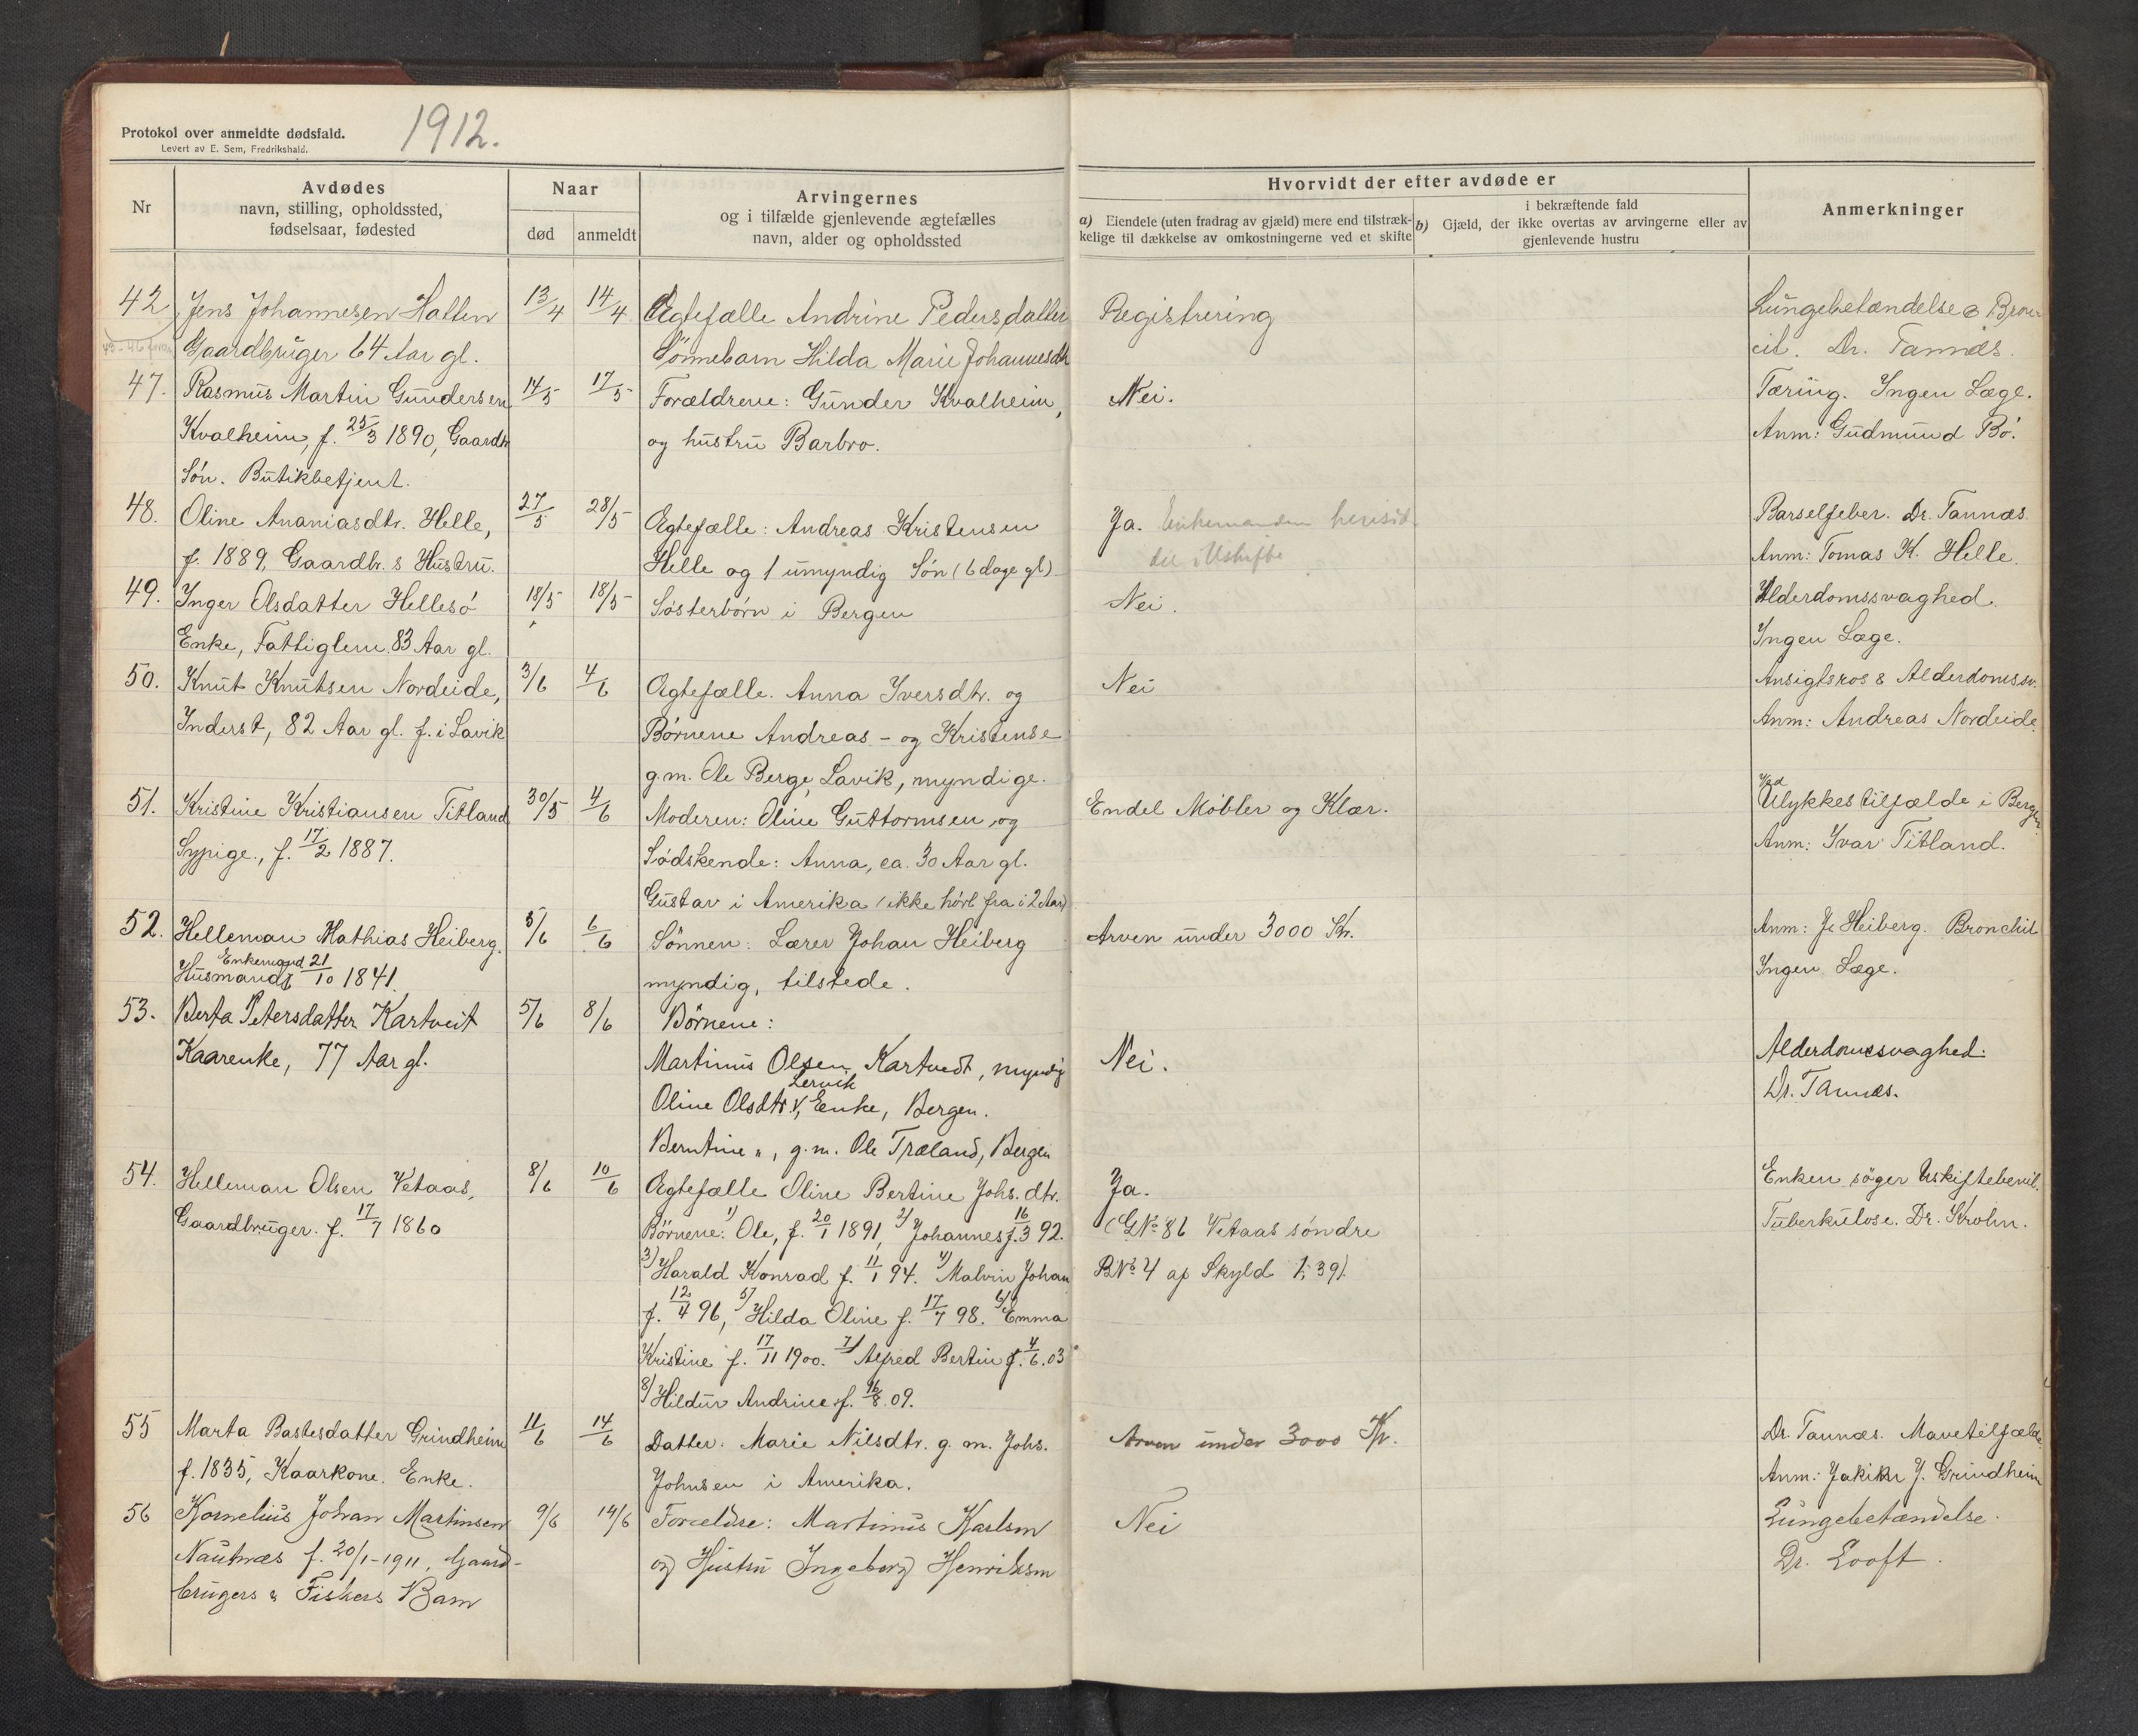 1912.
Protokol over anmeldte dødsfald.
Levert av E. Sem, Fredrikshald.
Nr
Avdødes
navn, stilling, opholdssted,
fødselsaar, fødested
Naar
død
anmeldt
Arvingernes
og i tilfælde gjenlevende ægtefælles
navn, alder og opholdssted
Hvorvidt der efter avdøde er
a) Eiendele (uten fradrag av gjæld) mere end tilstræk-
kelige til dækkelse av omkostningerne ved et skifte
i bekræftende fald
b) Gjæld, der ikke overtas av arvingerne eller av
gjenlevende hustru
Anmerkninger
42 Jens Johannesen Hatten 13/4 14/4 Ægtefælle Andrine Pedersdatter Registrering Lungebetændelse
Gaardbruger 64 Aar gl. Sönnebarn Hilda Marie Johannesdtr Dr. Tannæs.
47. Rasmus Martin Gundersen 14/5 17/5 Forældrene: Gunder Kvalheim, Nei. Tæring. Ingen Læge.
Kvalheim, f. 25/3 1890, Gaardbr og hustru Barbro. Anm: Gudmund Bö.
Sön. Butikbetjent.
48. Oline Ananiasdtr. Helle, 27/5 28/5 Ægtefælle: Andreas Kristensen Ja. Enkemanden hensid. Barselfeber. Dr. Tannæs.
f. 1889, Gaardbr. s Hustru. Helle og 1 umyndig Sön (6 dage gl) i Uskifte Anm: Tomas K. Helle.
49. Inger Olsdatter Hellesö 18/5 18/5 Sösterbörn i Bergen Nei. Alderdomssvaghed.
Enke, Fattiglem 83 Aar gl. Ingen Læge.
50. Knut Knutsen Nordeide, 3/6 4/6 Ægtefælle. Anna Iversdtr. og Nei Ansigtsros & Alderdomssv.
Inderst, 82 Aar gl. f. i Lavik Börnene Andreas - og Kristense Anm: Andreas Nordeide.
g.m. Ole Berge, Lavik, myndige.
51. Kristine Kristiansen Titland 30/5 4/6 Moderen: Oline Guttormsen og Endel Möbler og Klær. Ved Ulykkestilfælde i Bergen
Sypige., f. 17/2 1887. Södskende: Anna, ca. 30 Aar gl. Anm: Ivar Titland.
Gustav i Amerika (ikke hört fra i 2 Aar)
52. Helleman Mathias Heiberg. 5/6 6/6 Sönnen: Lærer Johan Heiberg Arven under 3000 Kr. Anm: J. Heiberg. Bronchit
Husmand Enkemand f. 21/10 1841. myndig, tilstede. Ingen Læge.
53. Berta Petersdatter Kartveit 5/6 8/6 Börnene:
Kaarenke, 77 Aar gl. Martinus Olsen Kartvedt, myndig Nei. Alderdomssvaghed.
Oline Olsdtr. Lervik, Enke, Bergen. Dr. Tannæs.
Berntine ", g.m. Ole Træland, Bergen
54. Helleman Olsen Vetaas, 8/6 10/6 Ægtefælle Oline Bertine Johs. dtr. Ja. Enken söger Uskiftebevil.
Gaardbruger. f. 17/7 1860 Börnene: 1) Ole, f. 20/1 1891, 2) Johannes f. 16/3 92. (GNo 86 Vetaas söndre Tuberkulose. Dr. Krohn.
3) Harald Konrad f. 11/1 94. 4) Malvin Johan BNo 4 af Skyld 1,39).
f. 12/4 96, 5) Hilda Oline f. 17/7 98. 6) Emma
Kristine f. 17/11 1900. 7) Alfred Bertin f. 4/6.03
8) Hildur Andrine f. 16/8 09.
55 Marta Bastesdatter Grindheim 11/6 14/6 Datter: Marie Nilsdtr. g. m. Johs. Arven under 3000 Kr. Dr. Tannæs. Mavetilfælde.
f. 1835, Kaarkone. Enke. Johnsen i Amerika. Anm: J. Grindheim
56 Kornelius Johan Martinsen 9/6 14/6 Forældre: Martinus Karlsen Nei Lungebetændelse.
Nautnæs f. 20/1-1911, Gaard- og Hustru Ingeborg Henriksen Dr. Looft.
brugers & Fiskers Barn